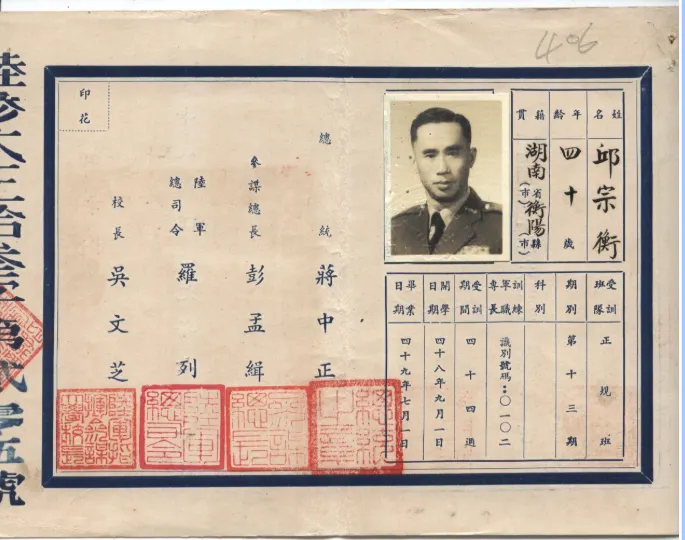 406
姓名 邱宗衡
年齡 四十歲
籍貫 湖南省(市)衡陽縣市(市)
受訓班隊 正規班
期別 第十三期
科別
訓練軍職專長 識別號碼:〇一〇二
受訓期間 四十四週
開學日期 四十八年九月一日
畢業日期 四十九年七月一日
總統 蔣中正
參謀總長 彭孟緝
陸軍總司令 羅列
校長 吳文芝
印花
第貳零五號